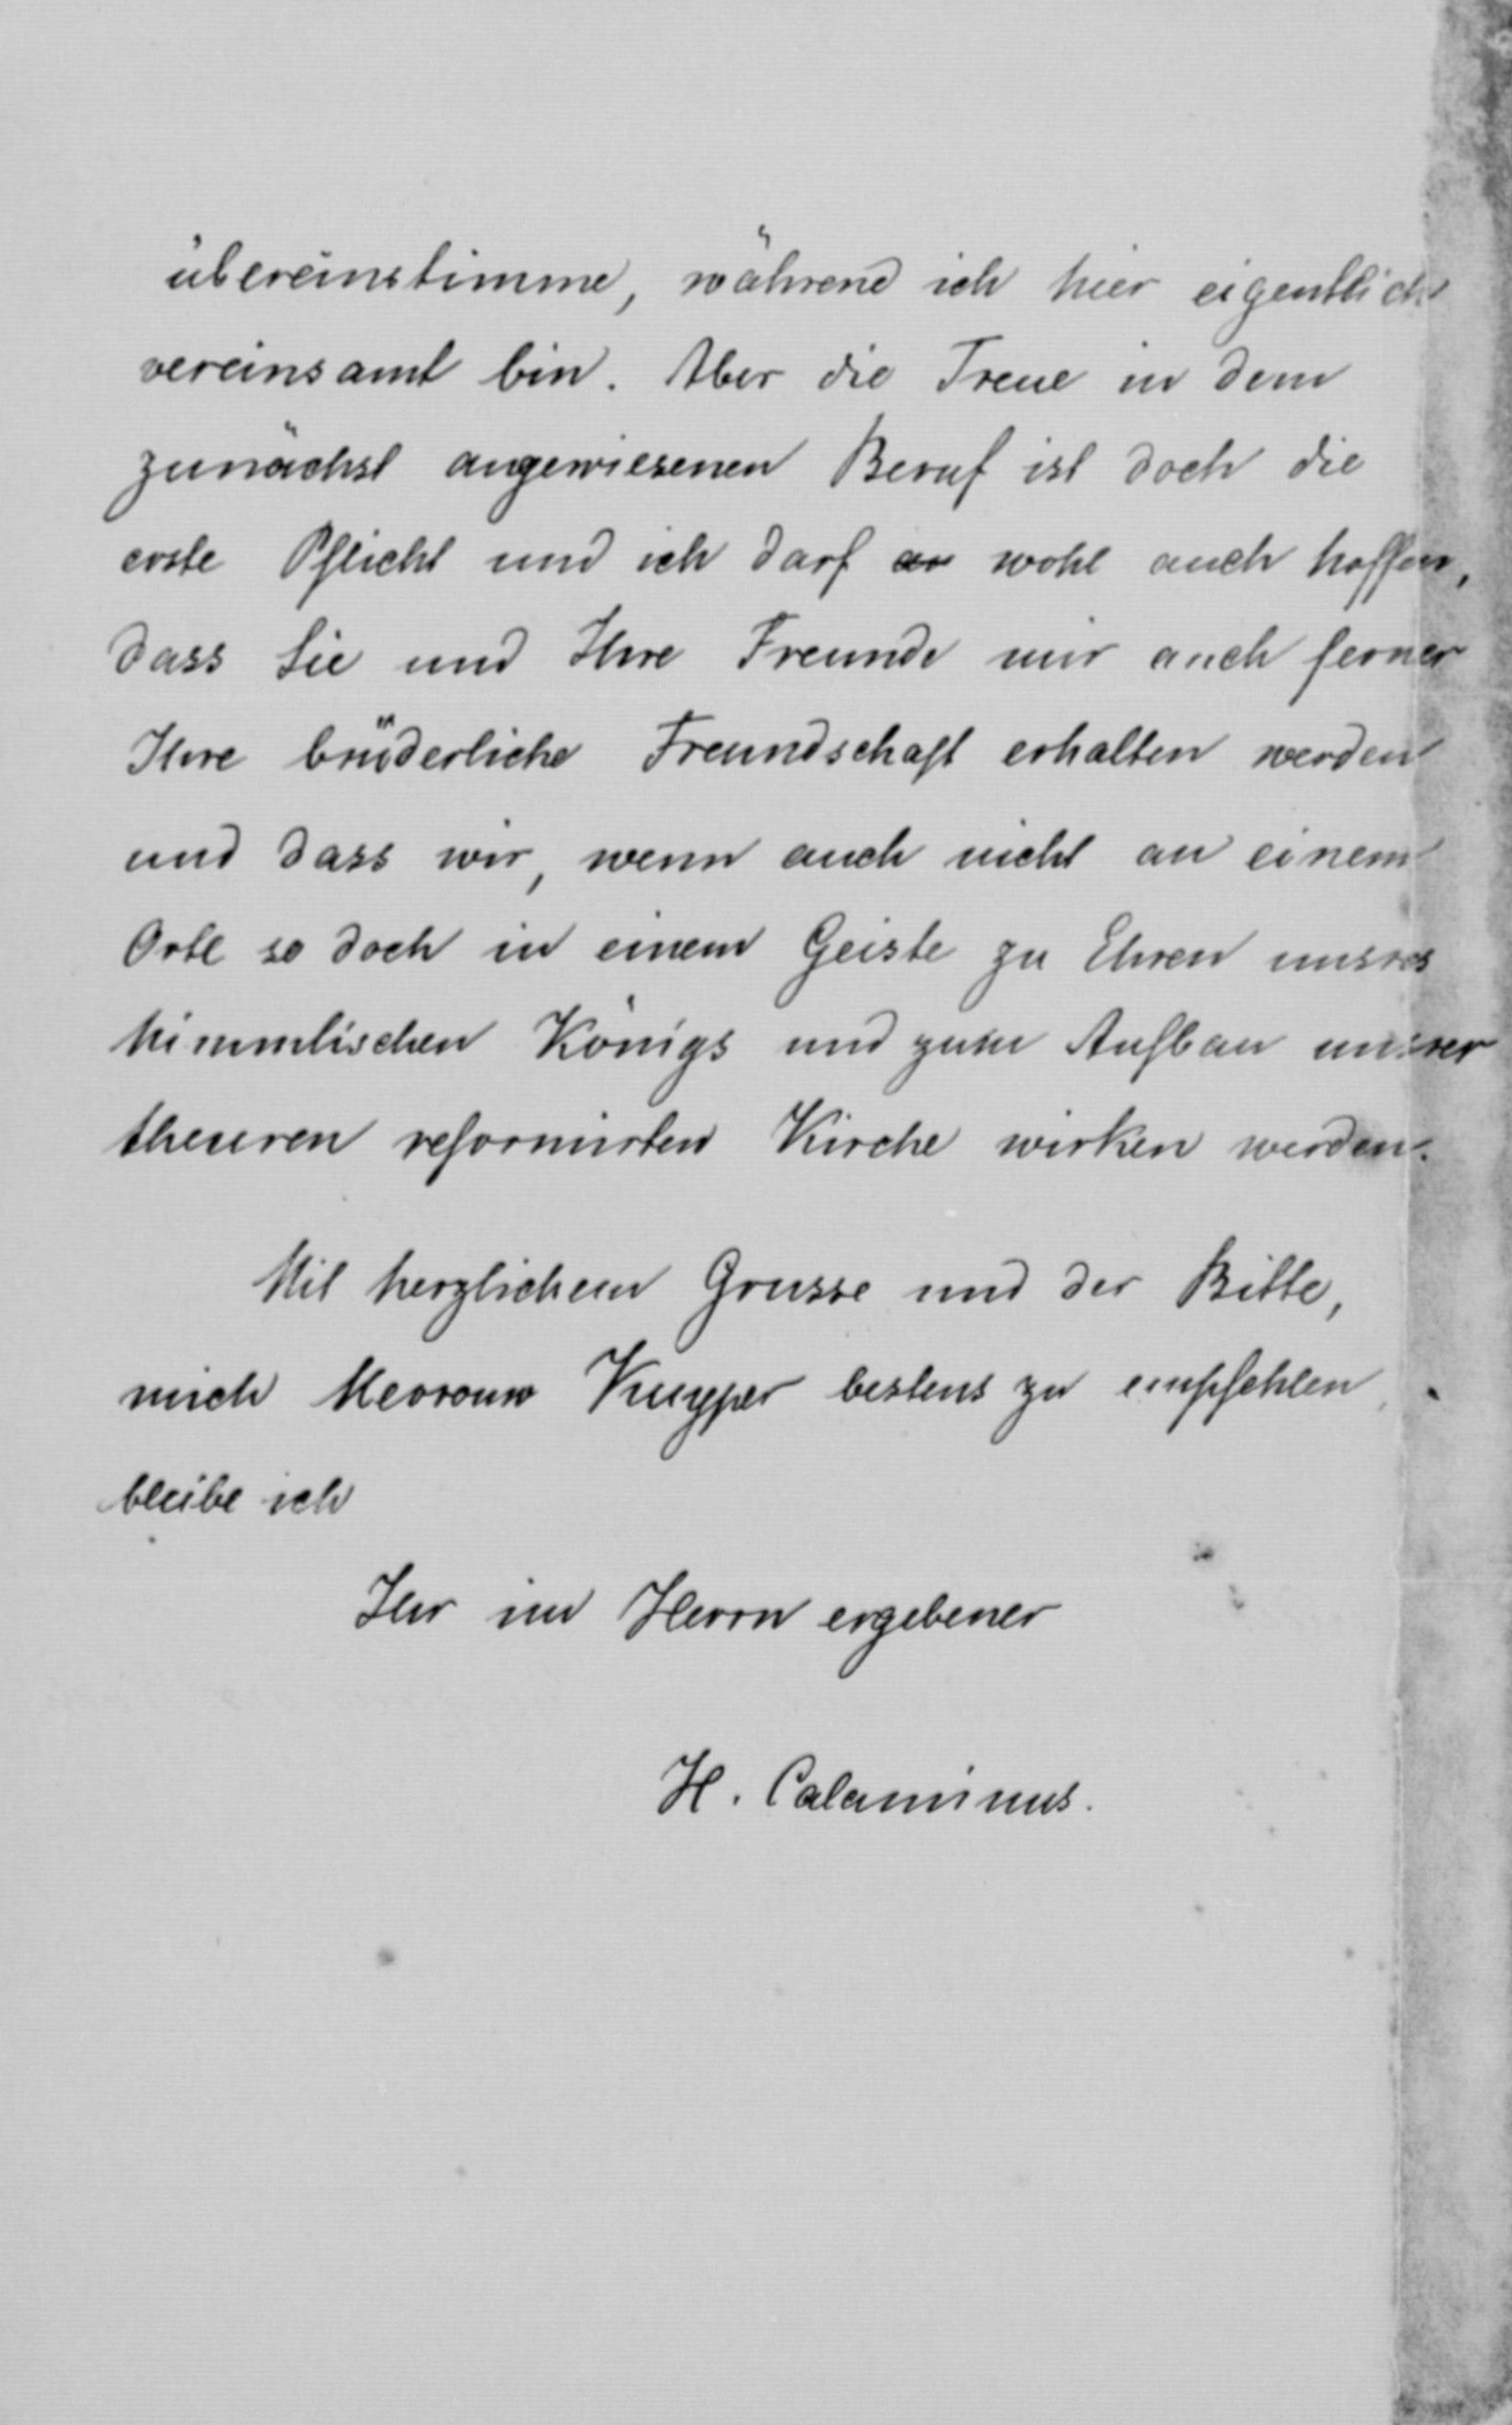 übereinstimme, während ich hier eigentlich
vereinsamt bin. Aber die Treue in dem
zunächst angewiesenen Beruf ist doch die
erste Pflicht und ich darf wohl auch hoffen,
dass Sie und Ihre Freunde mir auch ferner
Ihre brüderliche Freundschaft erhalten werden
und dass wir, wenn auch nicht an einem
Orte so doch in einem Geiste zu Ehren unsres
himmlischen Königs und zum Aufbau unsrer
theuren reformirten Kirche wirken werden.
Mit herzlichem Grusse und der Bitte,
mich Mevrouw Kuyper bestens zu empfehlen,
bleibe ich
Ihr im Herrn ergebener
H. Calaminus.